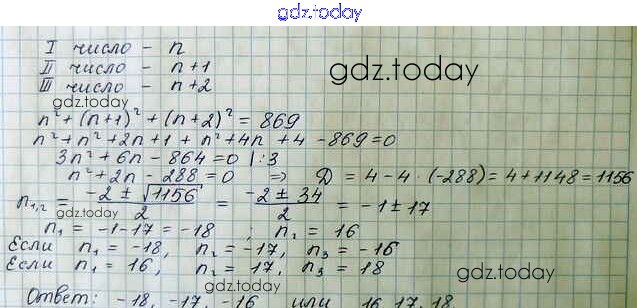 gdz.today
I число - n
II число - n+1
III число - n+2
gdz.today
gdz.today
n² + (n+1)² + (n+2)² = 869
n² + n² + 2n + 1 + n² + 4n + 4 - 869 = 0
3n² + 6n - 864 = 0 | :3
n² + 2n - 288 = 0 ⇒ D = 4 - 4 · (-288) = 4 + 1148 = 1156
n₁,₂ = (-2 ± √1156)/2 = (-2 ± 34)/2 = -1 ± 17
gdz.today
n₁ = -1-17 = -18 ; n₂ = 16
Если n₁ = -18, n₂ = -17, n₃ = -16
Если n₁ = 16, n₂ = 17, n₃ = 18
gdz.today
gdz.today
Ответ: -18, -17, -16 или 16, 17, 18